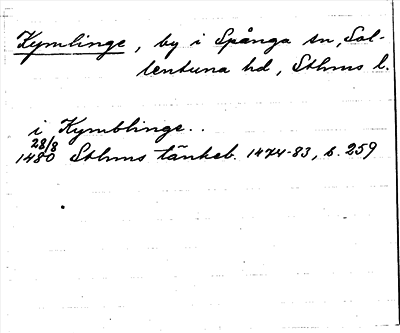 Kymlinge, by i Spånga sn, Sol-
lentuna hd, Sthms l.
i Kymblinge..
28/8
1480 Sthms tänkeb. 1474-83, s. 259